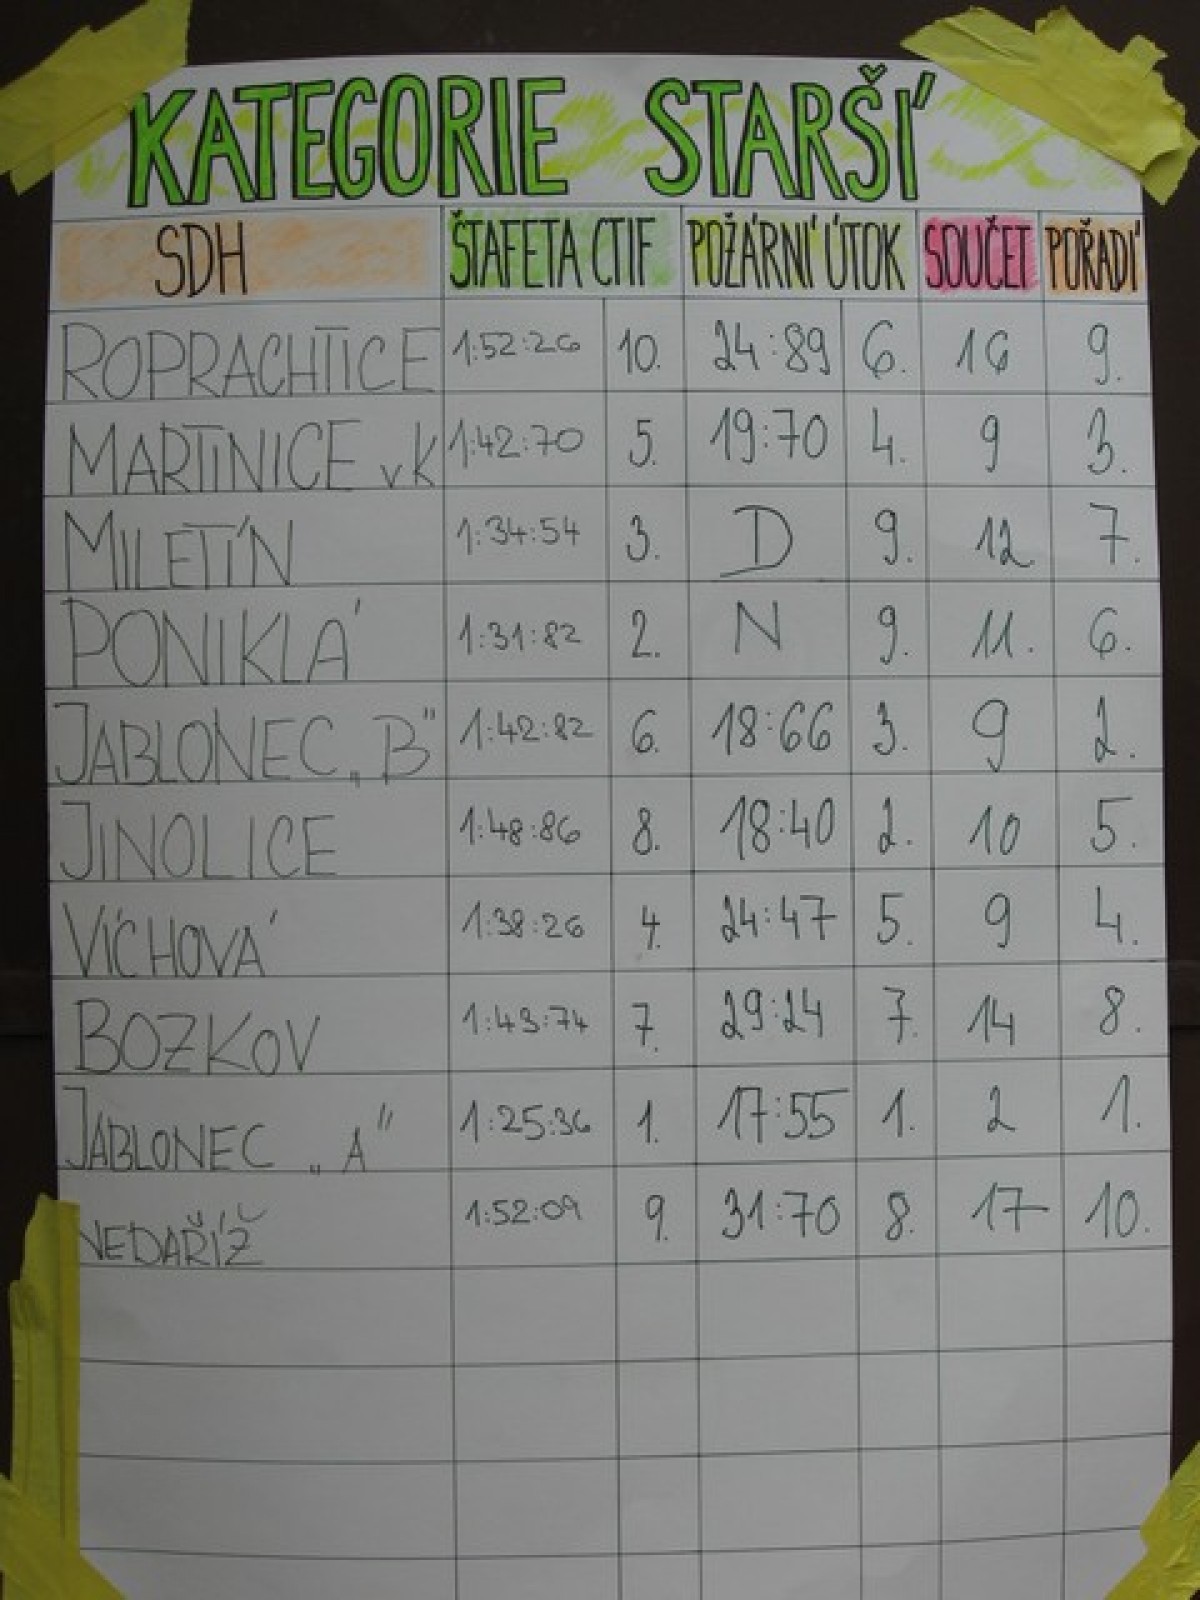 KATEGORIE STARŠÍ
SDH ŠTAFETA CTIF POŽÁRNÍ ÚTOK SOUČET POŘADÍ
ROPRACHTICE 1:52:26 10. 24:89 6. 16 9.
MARTINICE v K 1:42:70 5. 19:70 4. 9 3.
MILETÍN 1:34:54 3. D 9. 12. 7.
PONIKLÁ 1:31:82 2. N 9. 11. 6.
JABLONEC „B" 1:42:82 6. 18:66 3. 9 2.
JINOLICE 1:48:86 8. 18:40 2. 10 5.
VÍCHOVÁ 1:38:26 4. 24:47 5. 9 4.
BOZKOV 1:43:74 7. 29:24 7. 14 8.
JABLONEC „A" 1:25:36 1. 17:55 1. 2 1.
NEDAŘÍŽ 1:52:09 9. 31:70 8. 17 10.